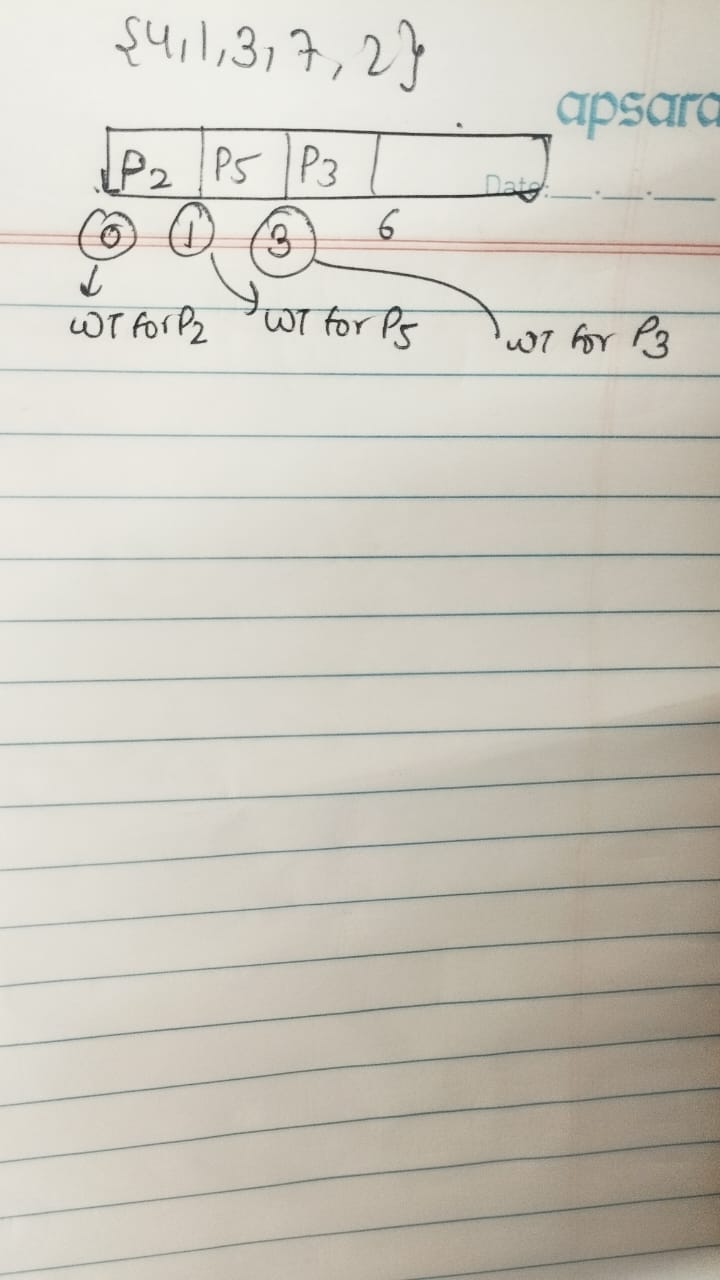 {4,1,3,7,2}
apsara
P2 P5 P3
Date:
0 1 3 6
WT for P2 WT for P5 WT for P3